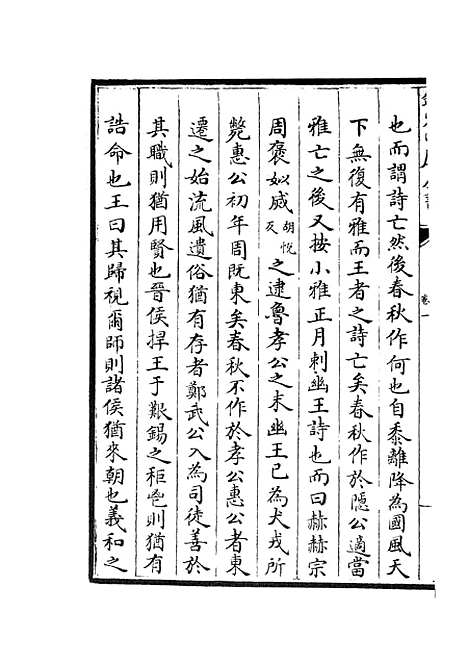 也而謂詩亡然後春秋作何也自黍離降為國風天
下無復有雅而王者之詩亡矣春秋作於隱公適當
雅亡之後又按小雅正月刺幽王詩也而曰赫赫宗
周褒姒烕胡悅反之逮魯孝公之末幽王已為犬戎所
斃惠公初年周既東矣春秋不作於孝公惠公者東
遷之始流風遺俗猶有存者鄭武公入為司徒善於
其職則猶用賢也晉侯捍王于艱錫之秬鬯則猶有
誥命也王曰其歸視爾師則諸侯猶來朝也義和之